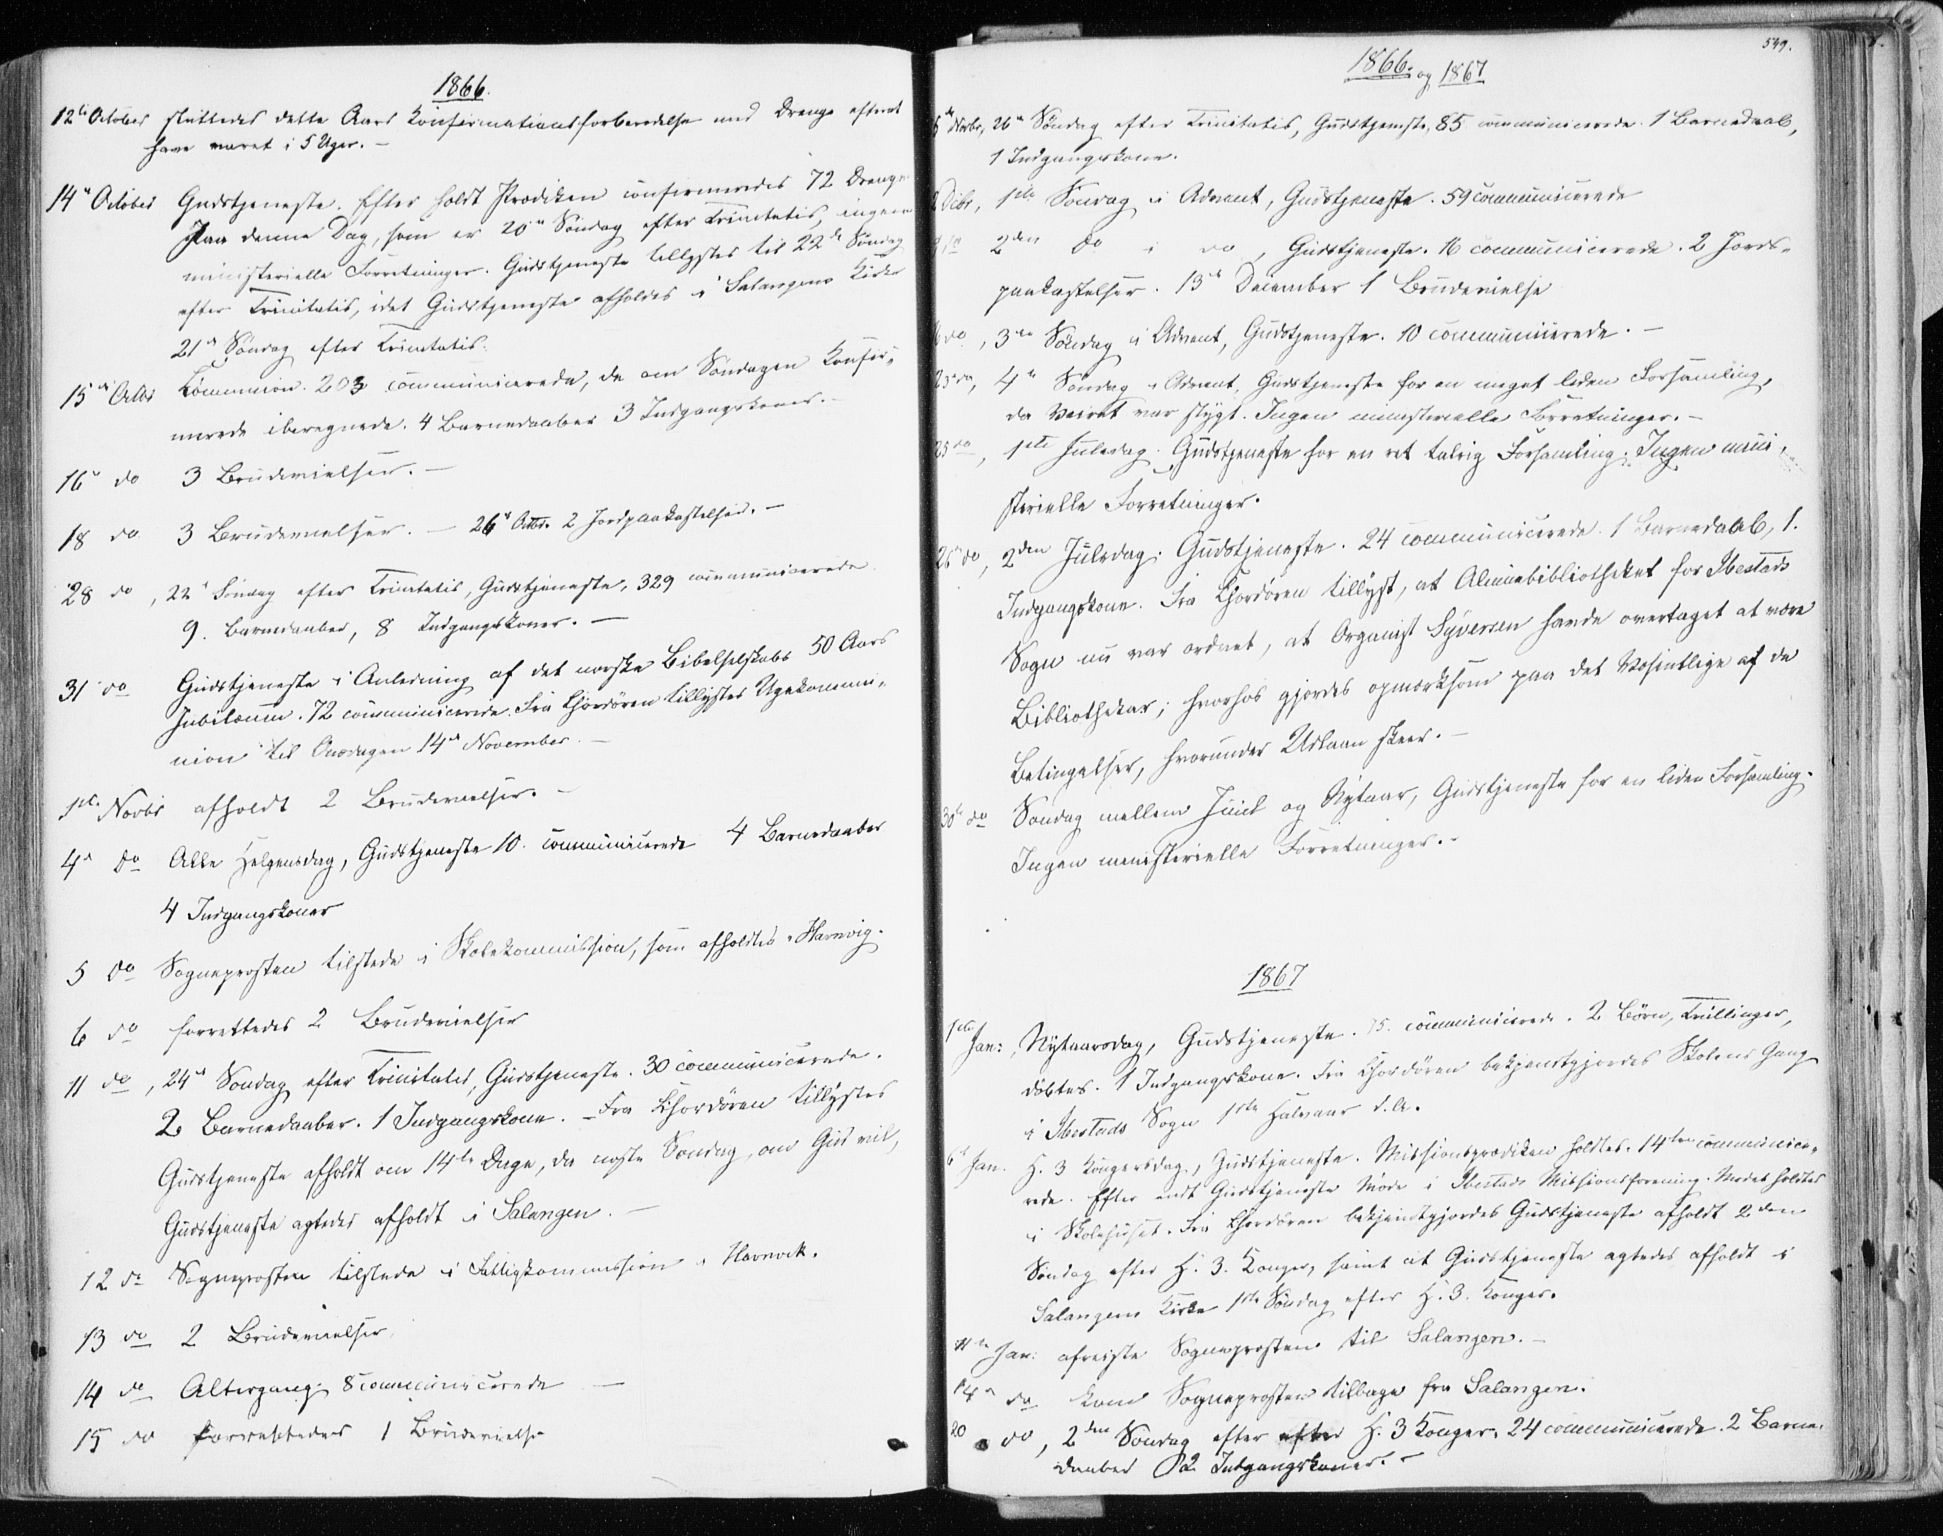 1866.
12te October sluttedes dette Aars Konfirmationsforberedelse med Drenge efterat
have varet i 5 Uger. –
14de October Gudstjeneste. Efter holdt Prædiken confirmeredes 72 Drenge
Paa denne Dag, som er 20de Søndag efter Trinitatis, ingen
ministerielle Forretninger. Gudstjeneste tillystes til 22de Søndag
efter Trinitatis, idet Gudstjeneste afholdes i Salangens Kirke
21de Søndag efter Trinitatis.
15de Octbr Communion. 203 communicerede, de om Søndagen Konfir-
merede iberegnede. 4 Barnedaaber 3 Indgangskoner. –
16de do 3 Brudevielser. –
18 do 3 Brudevielser. – 26de Octbr. 2 Jordpaakastelser. –
28 do, 22de Søndag efter Trinitatis, Gudstjeneste, 329 communicerede
9. Barnedaaber, 8 Indgangskoner. –
31 do Gudstjeneste i Anledning af det norske Bibelselskabs 50 Aars
Jubilæum. 72 communicerede. Fra Chordøren tillystes Ugekommu-
nion til Onsdagen 14de November. –
1ste Novbr afholdt 2 Brudevielser. –
4de do Alle Helgensdag, Gudstjeneste 10. communicerede 4 Barnedaaber
4 Indgangskoner
5 do Sogneprosten tilstede i Skolekommission, som afholdtes i Havnvig.
6 do forrettedes 2 Brudevielser
11 do, 24de Søndag efter Trinitatis, Gudstjeneste. 30 communicerede.
2. Barnedaaber. 1 Indgangskone. – Fra Chordøren tillystes
Gudstjeneste afholdt om 14te Dage, da næste Søndag, om Gud vil,
Gudstjeneste agtedes afholdt i Salangen. –
12 do Sogneprosten tilstede i Fattigkommission i Havnvik.
13 do 2 Brudevielser.
14 do Altergang. 8 communicerede –
15 do forrettedes 1 Brudevielse
549.
1866. og 1867
Novbr, 26de Søndag efter Trinitatis, Gudstjeneste, 85 communicerede. 1 Barnedaab,
1 Indgangskone.
2 Decbr, 1ste Søndag i Advent, Gudstjeneste. 59 communicerede
9de do 2den do i do, Gudstjeneste. 16 communicerede. 2 Jords-
paakastelser. 13de December 1 Brudevielse
do, 3die Søndag i Advent, Gudstjeneste. 10 communicerede. –
23de do, 4de Søndag i Advent, Gudstjeneste for en meget liden Forsamling,
da Veiret var stygt. Ingen ministerielle Forretninger. –
25 do, 1ste Juledag. Gudstjeneste for en ret talrig Forsamling. Ingen mini-
sterielle Forretninger.
26de do, 2den Juledag. Gudstjeneste. 24 communicerede. 1 Barnedaab, 1.
Indgangskone. Fra Chordøren tillyst, at Almuebibliotheket for Ibestads
Sogn nu var ordnet, at Organist Syversen havde overtaget at være
Bibliothekar; hvorhos gjordes opmærksom paa det Væsentlige af de
Betingelser, hvorunder Udlaan skeer. –
30te do Søndag mellem Juul og Nytaar, Gudstjeneste for en liden Forsamling.
Ingen ministerielle Forretninger. –
1867
1ste Jan:, Nytaarsdag, Gudstjeneste. 15. communicerede. 2 Børn, Tvillinger,
døbtes. 1 Indgangskone. Fra Chordøren bekjendtgjordes Skolens Gang
i Ibestads Sogn 1ste Halvaar d.A.
6te Jan. H. 3 Kongersdag, Gudstjeneste. Missionsprædiken holdtes. 14ten communice-
rede. Efter endt Gudstjeneste Møde i Ibestads Missionsforening. Mødet holdtes
i Skolehuset. Fra Chordøren bekjendtgjordes Gudstjeneste afholdt 2den
Søndag efter H. 3. Konger, samt at Gudstjeneste agtedes afholdt i
Salangens Kirke 1ste Søndag efter H. 3. Konger.
11te Jan: afreiste Sogneprosten til Salangen. –
14de do kom Sogneprosten tilbage fra Salangen.
20 do, 2den Søndag efter efter H. 3 Konger. 24 communicerede. 2 Barne-
daaber 2 Indgangskoner. –